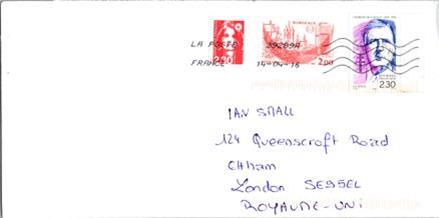 LA POSTE 39289A
FRANCE 14-04-16
2.00
2.30
IAN SMALL
124 Queenscroft Road
London SE9 5EL
ROYAUME-UNI